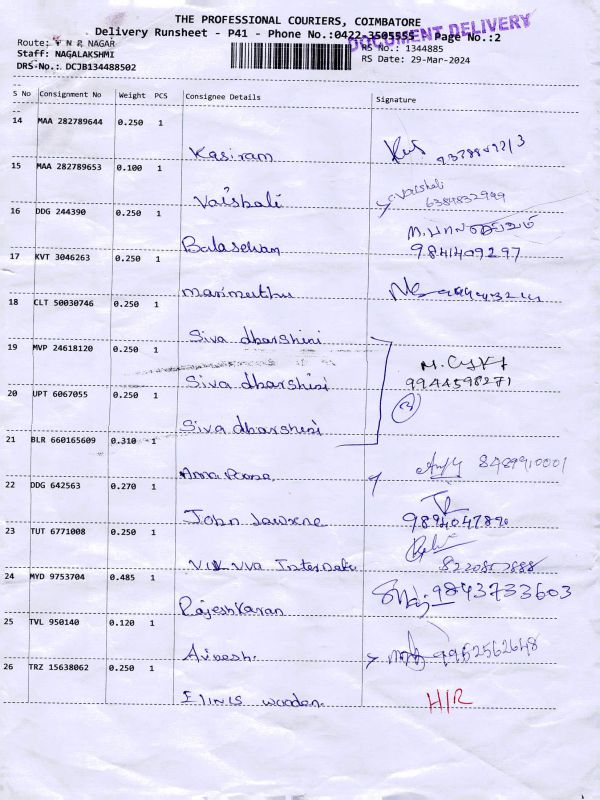 THE PROFESSIONAL COURIERS, COIMBATORE
Delivery Runsheet - P41 - Phone No.:0422-3505555 Page No.:2
DOCUMENT DELIVERY
Route: V N R NAGAR
RS No.: 1344885
Staff: NAGALAKSHMI
RS Date: 29-Mar-2024
DRS-No.: DCJB134488502
S No Consignment No Weight PCS Consignee Details Signature
14 MAA 282789644 0.250 1
Kasiram
15 MAA 282789653 0.100 1
Vaishali
Vaishali
6384832999
16 DDG 244390 0.250 1
Balaselvan
9841409297
17 KVT 3046263 0.250 1
Marimuthu
18 CLT 50030746 0.250 1
Siva dharshini
19 MVP 24618120 0.250 1
Siva dharshini
9944598271
3
20 UPT 6067055 0.250 1
Siva dharshini
21 BLR 660165609 0.310 1
Anna Poorna
8489910001
22 DDG 642563 0.270 1
John Lawrence
9894047890
23 TUT 6771008 0.250 1
8220857888
24 MYD 9753704 0.485 1
Rajeshkaran
9843733603
25 TVL 950140 0.120 1
Avinash.
9962562648
26 TRZ 15638062 0.250 1
wooden
H/R